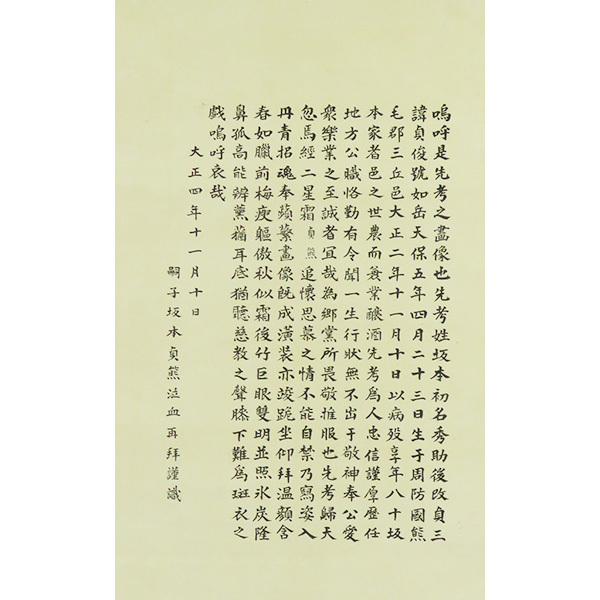 嗚呼是先考之畫像也先考姓坂本初名秀助後改貞三
諱貞俊號如岳天保五年四月二十三日生于周防國熊
毛郡三丘邑大正二年十一月十日以病歿享年八十坂
本家者邑之世農而兼業釀酒先考爲人忠信謹厚歴任
地方公職恪勤有令聞一生行狀無不出于敬神奉公愛
衆樂業之至誠者宜哉為鄉黨所畏敬推服也先考歸天
忽焉經二星霜貞熊追懷思慕之情不能自禁乃寫姿入
丹青招魂奉蘋蘩畫像旣成潢裝亦竣跪坐仰拜温顏含
春如臘前梅瘦軀傲秋似霜後竹巨眼雙明並照氷炭隆
鼻孤高能辨薰蕕耳底猶聽慈教之聲膝下難爲斑衣之
戲嗚呼哀哉
大正四年十一月十日
嗣子坂本貞熊泣血再拜謹識